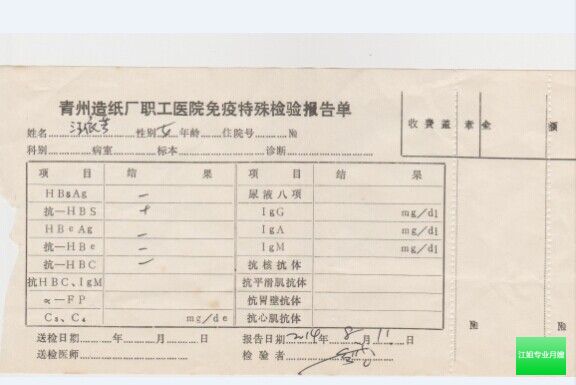 青州造纸厂职工医院免疫特殊检验报告单
姓名 性别 女 年龄 住院号 №
科别 病室 标本 诊断
收费盖章 金额
项目 结果 项目 结果
HBsAg — 尿液八项
抗—HBS + IgG mg/dl
HBeAg — IgA mg/dl
抗—HBe — IgM mg/dl
抗—HBC — 抗核抗体
抗HBC、IgM 抗平滑肌抗体
α—FP 抗胃壁抗体
C₃、C₄ mg/de 抗心肌抗体
№ №
送检日期 年 月 日 报告日期 2014 年 8 月 11 日
送检医师 检验者
江姐专业月嫂